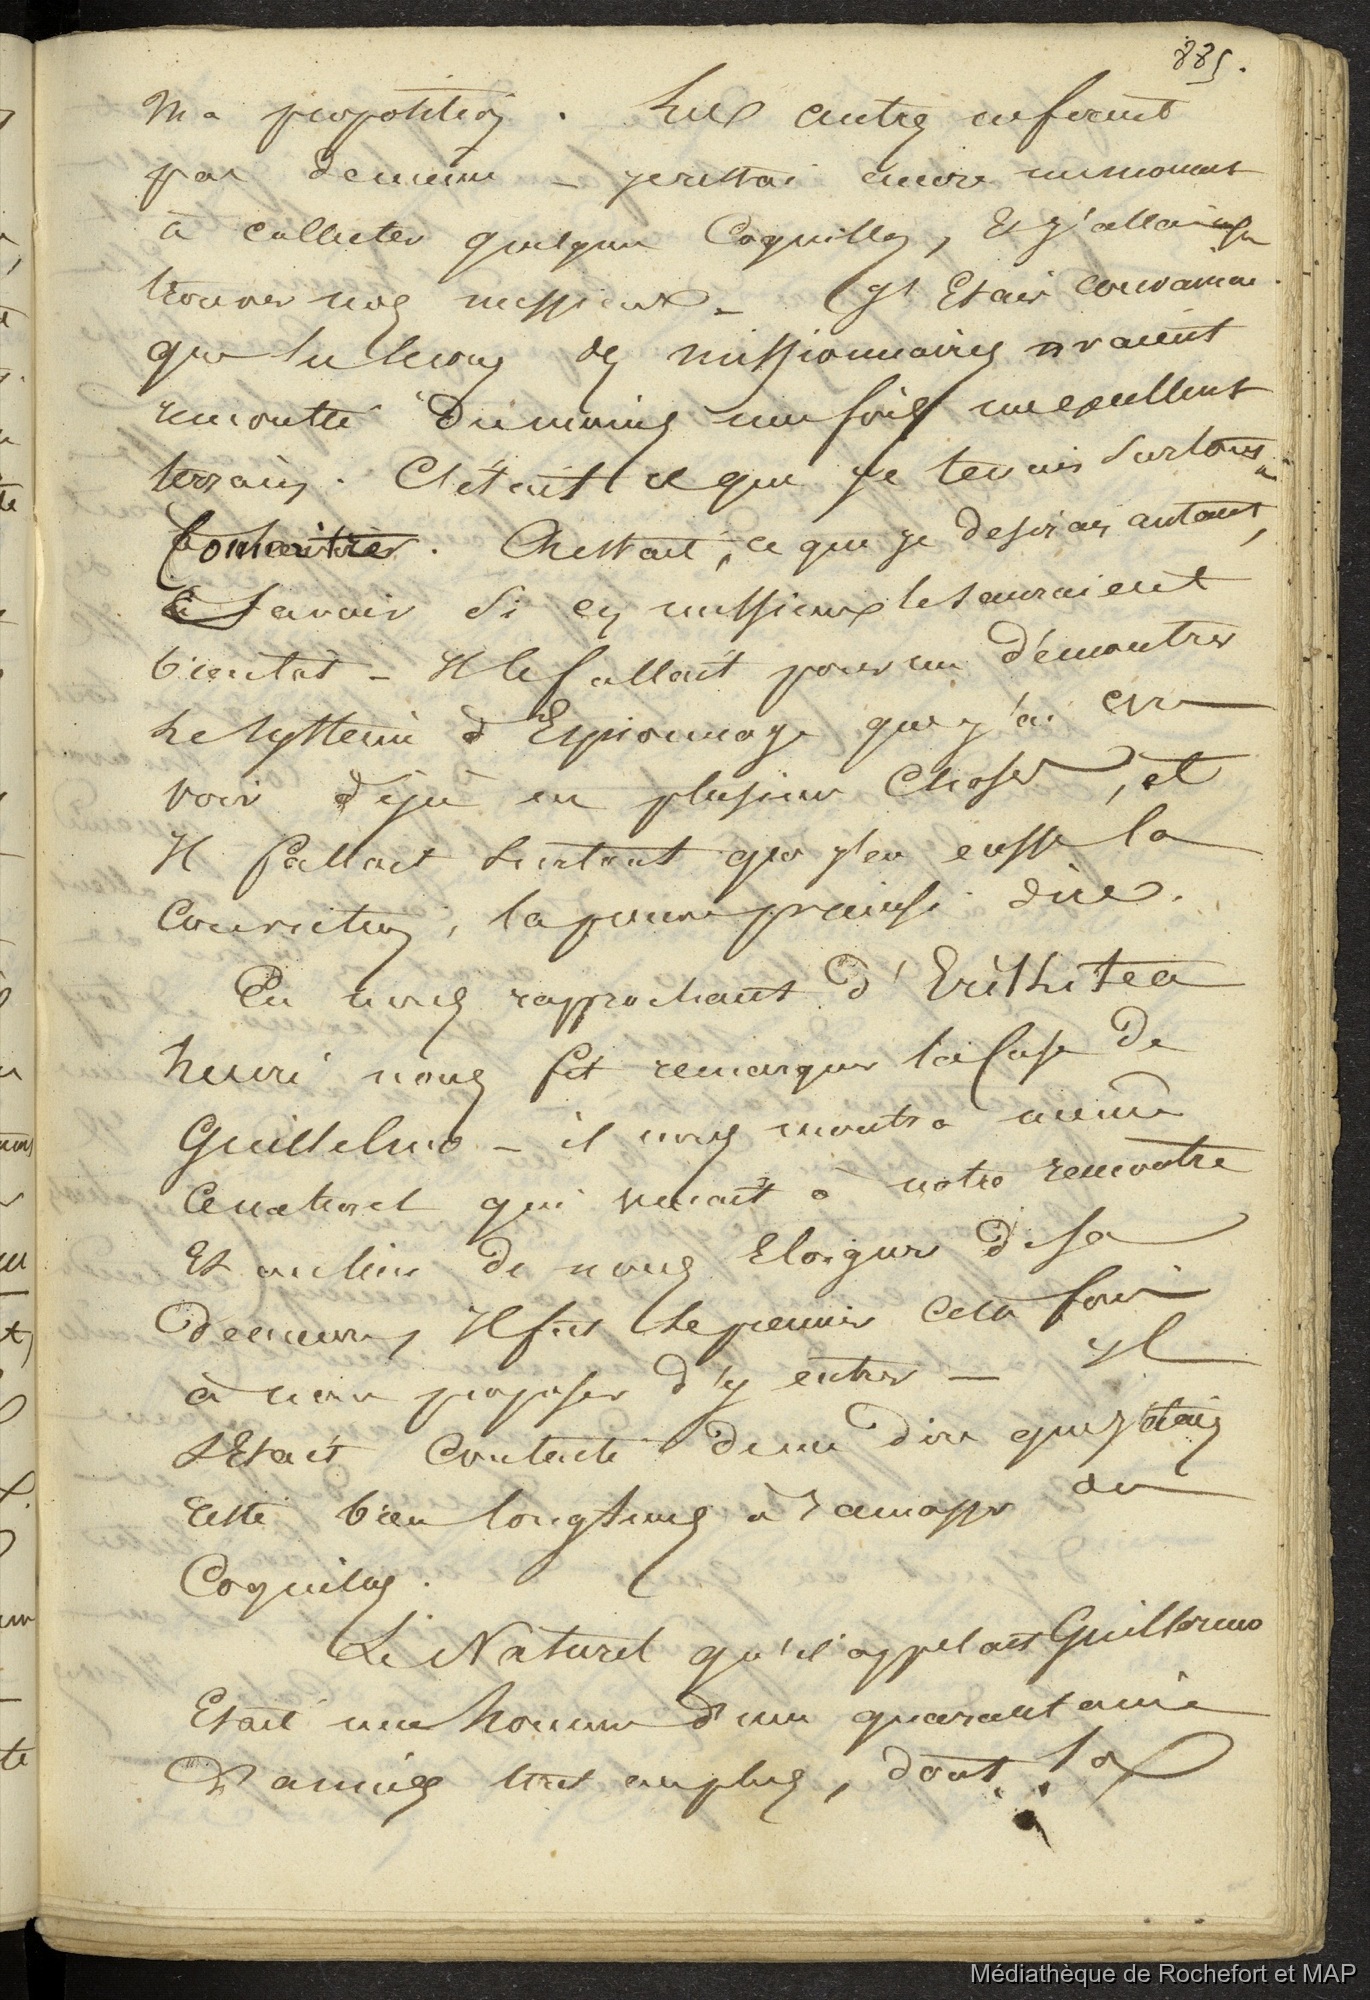 885.
Ma proposition. Les autres en firent
pas de même _ je restai encore un moment
à collecter quelques Coquilles, Et j'allai enfin
trouver nos messieurs _ j' Etais convaincu
que les leçons des missionnaires avaient
rencontré du moins une fois un excellent
terrain. C'était ce que je tenais surtout à
Connaitre. C'hestait, ce que je desirais autant,
à savoir si ces messieurs le sauraient
bientot _ Il le fallait pour me démontrer
le systteme d'Espionnage que j'ai cru
voir déjà en plusieurs choses, et
Il fallait surtout que j'en eusse la
Conviction, la preuve pr ainsi dire.
En nous rapprochant d'
henri nous fit remarquer la Case de
Guillelmo _ il nous montra même
ce naturel qui venait à notre rencontre
Et au lieu de nous Eloigner de sa
demeure, Il fut le premier cette fois
à nous proposer d'y entrer _ Il
s'Etait contenté de me dire que j'étais
resté bien longtems à ramasser des
Coquilles.
Le Naturel qu'il appelait Guillermo
Etait un homme d'une quarantaine
d'années tout au plus, dont la
Médiathèque de Rochefort et MAP